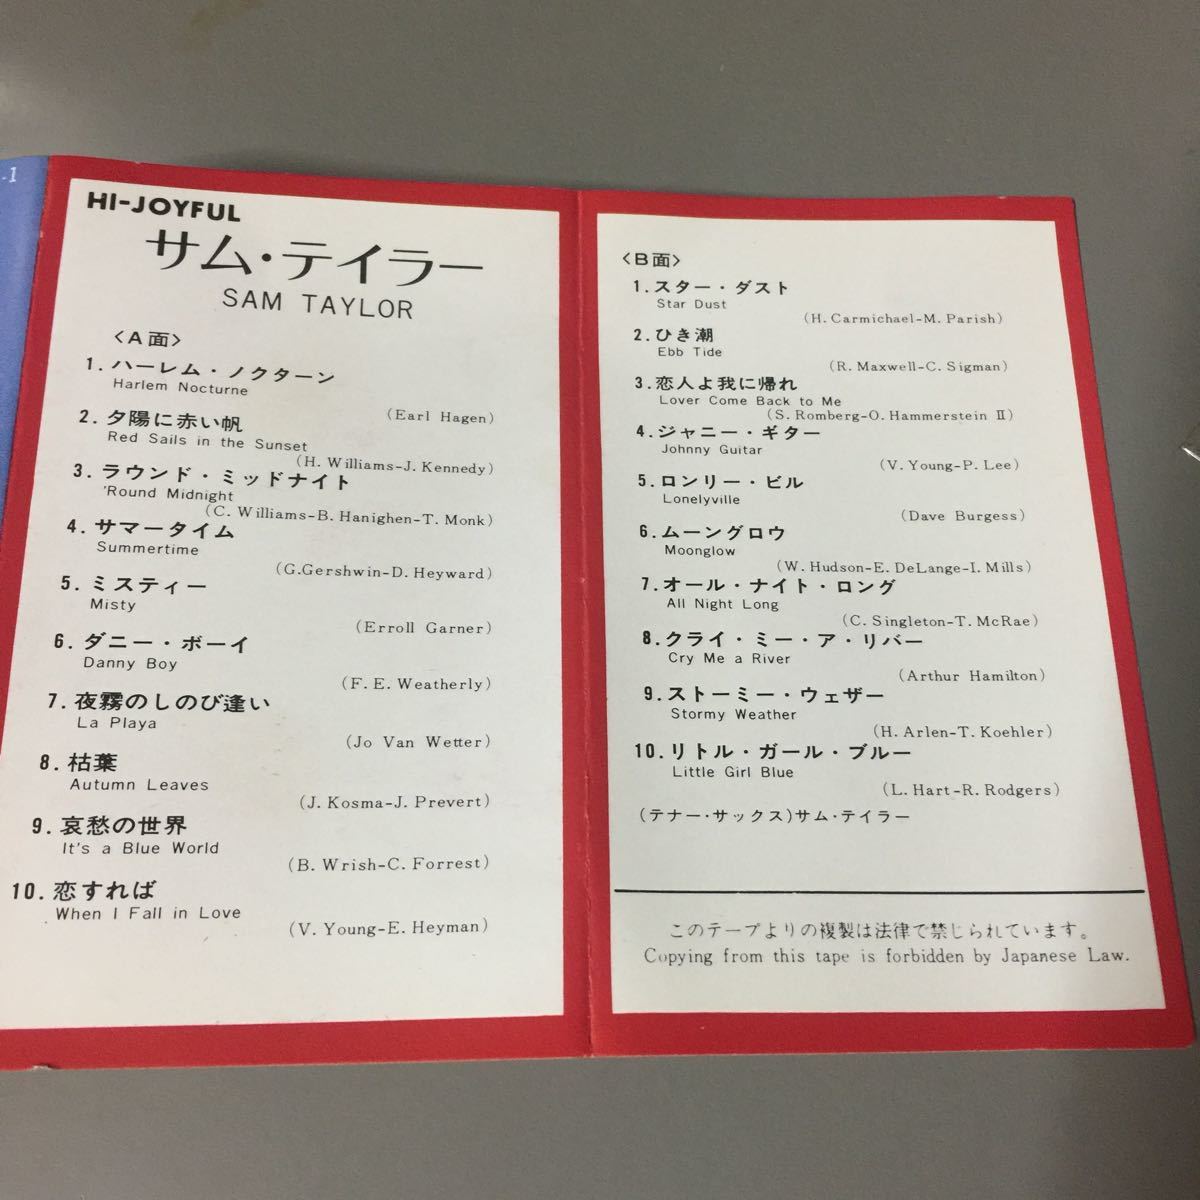 -1
HI-JOYFUL
サム・テイラー
SAM TAYLOR
〈A面〉
1.ハーレム・ノクターン
Harlem Nocturne
(Earl Hagen)
2.夕陽に赤い帆
Red Sails in the Sunset
(H. Williams-J. Kennedy)
3.ラウンド・ミッドナイト
'Round Midnight
(C. Williams-B. Hanighen-T. Monk)
4.サマータイム
Summertime
(G.Gershwin-D. Heyward)
5.ミスティー
Misty
(Erroll Garner)
6.ダニー・ボーイ
Danny Boy
(F. E. Weatherly)
7.夜霧のしのび逢い
La Playa
(Jo Van Wetter)
8.枯葉
Autumn Leaves
(J. Kosma-J. Prevert)
9.哀愁の世界
It's a Blue World
(B. Wrish-C. Forrest)
10.恋すれば
When I Fall in Love
(V. Young-E. Heyman)
〈B面〉
1.スター・ダスト
Star Dust
(H. Carmichael-M. Parish)
2.ひき潮
Ebb Tide
(R. Maxwell-C. Sigman)
3.恋人よ我に帰れ
Lover Come Back to Me
(S. Romberg-O. Hammerstein II)
4.ジャニー・ギター
Johnny Guitar
(V. Young-P. Lee)
5.ロンリー・ビル
Lonelyville
(Dave Burgess)
6.ムーングロウ
Moonglow
(W. Hudson-E. DeLange-I. Mills)
7.オール・ナイト・ロング
All Night Long
(C. Singleton-T. McRae)
8.クライ・ミー・ア・リバー
Cry Me a River
(Arthur Hamilton)
9.ストーミー・ウェザー
Stormy Weather
(H. Arlen-T. Koehler)
10.リトル・ガール・ブルー
Little Girl Blue
(L. Hart-R. Rodgers)
(テナー・サックス)サム・テイラー
このテープよりの複製は法律で禁じられています。
Copying from this tape is forbidden by Japanese Law.